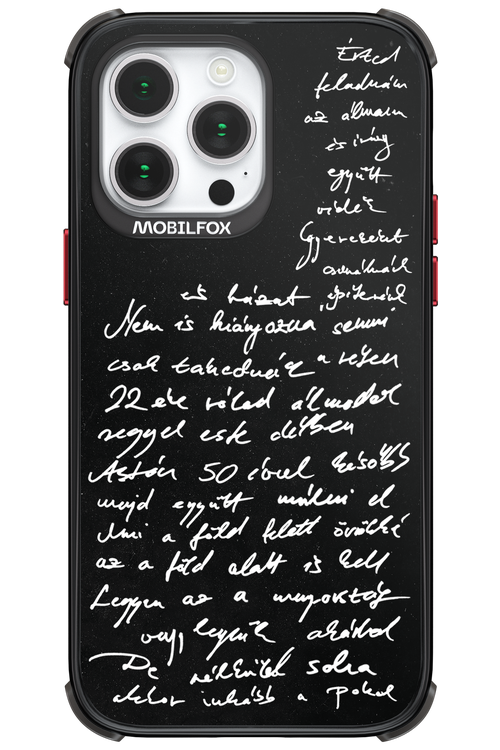 MOBILFOX
Érted
feladnám
az álmaim
és irány
együtt
vidék
Gyerekeket
csinálnánk
és házat építenénk
Nem is hiányozna semmi
csak tekednénk a réten
22 éve rólad álmodok
reggel este délben
Aztán 50 évvel később
majd együtt múlni el
Ami a föld felett örökké
az a föld alatt is kell
Legyen az a mennyország
vagy legyünk akárhol
De nélküled soha
akkor inkább a pokol